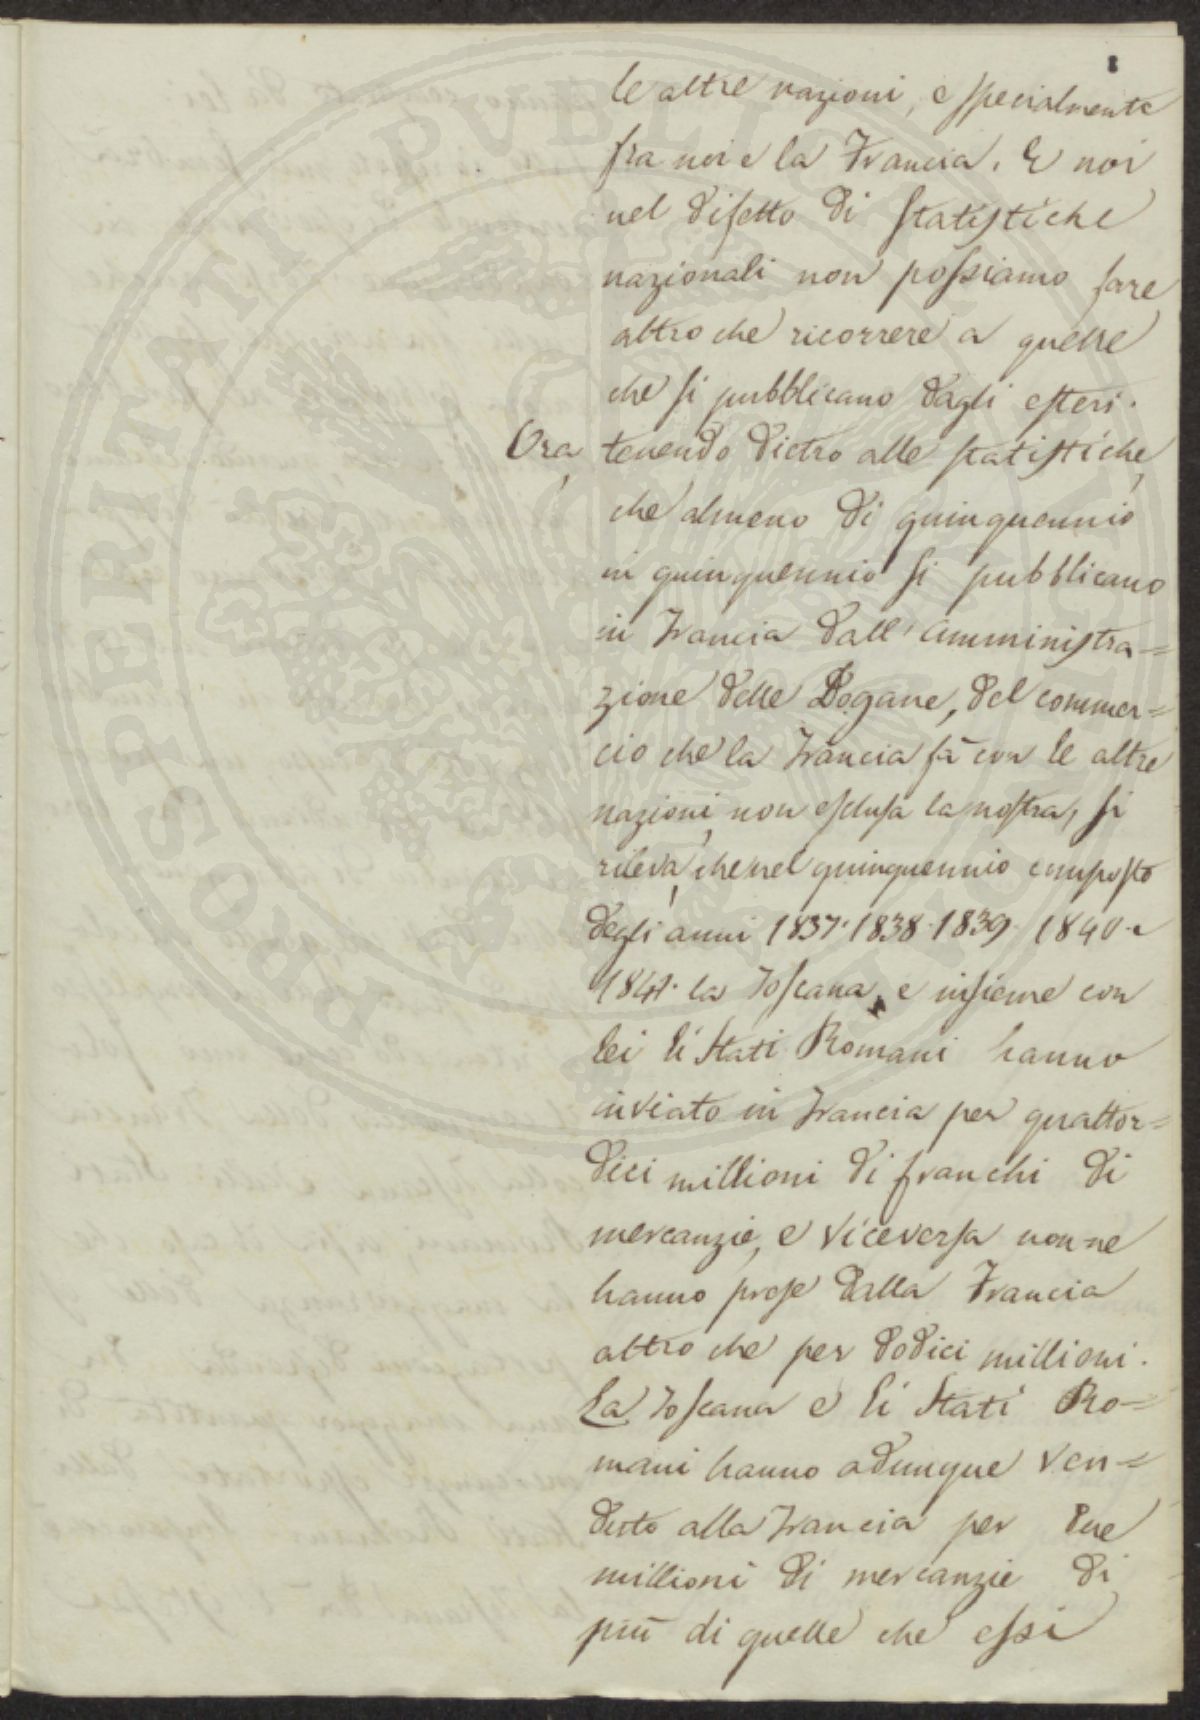 le altre nazioni, e specialmente
fra noi e la Francia. E noi
nel difetto di statistiche
nazionali non possiamo fare
altro che ricorrere a quelle
che si pubblicano dagli esteri.
Ora, tenendo dietro alle statistiche,
che almeno di quinquennio
in quinquennio si pubblicano
in Francia dall'amministra=
zione delle Dogane, del commer=
cio che la Francia fà con le altre
nazioni, non esclusa la nostra, si
rileva, che nel quinquennio composto
degli anni 1837. 1838. 1839. 1840. e
1841. la Toscana, e insieme con
lei li Stati Romani hanno
inviato in Francia per quattor=
dici millioni di franchi di
mercanzie, e viceversa non ne
hanno prese dalla Francia
altro che per dodici millioni.
La Toscana e li Stati Ro=
mani hanno adunque ven=
duto alla Francia per due
millioni di mercanzie di
più di quelle che essi
PROSPERITATI PUBLICAE